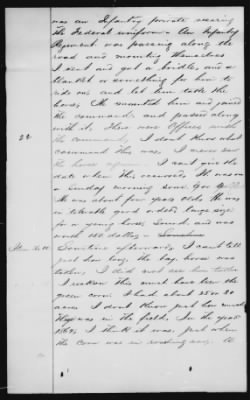 was an Infantry private wearing
the Federal uniform – An Infantry
Regiment was passing along the
road and mounting themselves
I went and got a bridle, and a
blanket or something for him to
ride on and let him take the
horse, He mounted him and joined
the command, and passed along
with it. There were officers with
the command. I don't know what
command this was. I never saw
the horse again. I can't give the
date when this occurred. It was on
a Sunday morning
He was about four years old. He was
in tolerable good order, large size
for a young horse, sound, and was
worth 150 dollars
22
Item No.
Sometime afterwards, I can't tell
just how long, the bay horse was
taken, I did not see him taken
I reckon this must have been the
green corn I had about 25 or 30
acres I don't know just how much
there was in the field. In the year
I think it was, just when
the corn was in roasting ears.